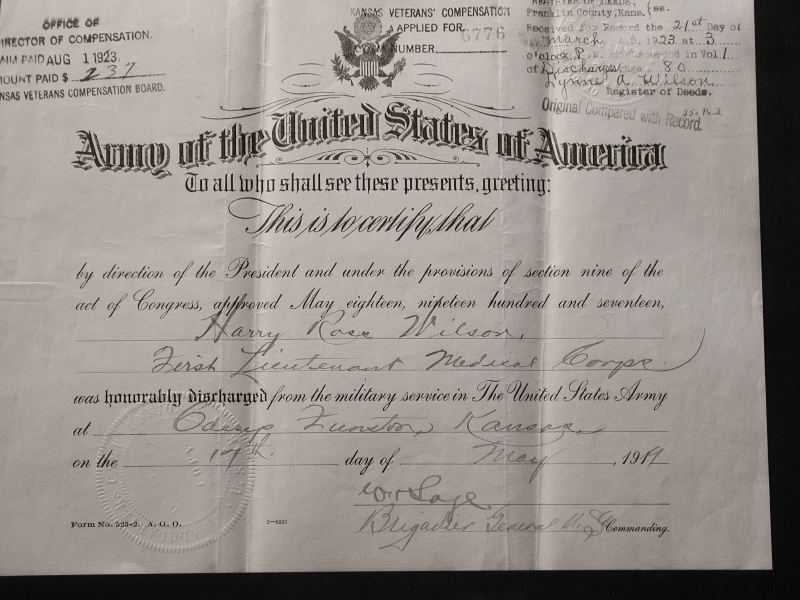 OFFICE OF
DIRECTOR OF COMPENSATION.
CLAIM PAID AUG 1 1923.
AMOUNT PAID $ 237
KANSAS VETERANS COMPENSATION BOARD.
KANSAS VETERANS' COMPENSATION
APPLIED FOR.
NUMBER. 6776
Franklin County, Kans. ss.
Received for Record the 21st Day of
March A.D. 1923 at 3
o'clock P. in Vol. 1
of Discharges 80
Lynne A. Wilson
Register of Deeds.
Original Compared with Record.
Army of the United States of America
To all who shall see these presents, greeting:
This is to certify that
by direction of the President and under the provisions of section nine of the
act of Congress, approved May eighteen, nineteen hundred and seventeen,
Harry Ross Wilson,
First Lieutenant Medical Corps.
was honorably discharged from the military service in The United States Army
at Camp Funston, Kansas,
on the 17th day of May, 1919
Wm Sage
Brigadier General U.S. Commanding.
Form No. 525-2. A. G. O.